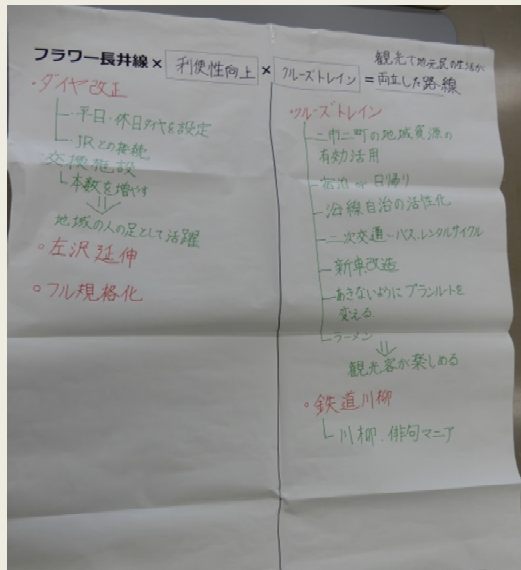 フラワー長井線×利便性向上×クルーズトレイン=
観光で地元民の生活が
両立した路線
・ダイヤ改正
平日・休日ダイヤを設定
JRとの接続
交換施設
本数を増やす
地域の人の足として活躍
○左沢延伸
○フル規格化
・クルーズトレイン
二市二町の地域資源の
有効活用
宿泊 or 日帰り
沿線自治の活性化
二次交通-バス、レンタルサイクル
新車改造
あきないようにプランルートを
変える
ラーメン
観光客が楽しめる
○鉄道川柳
川柳、俳句マニア